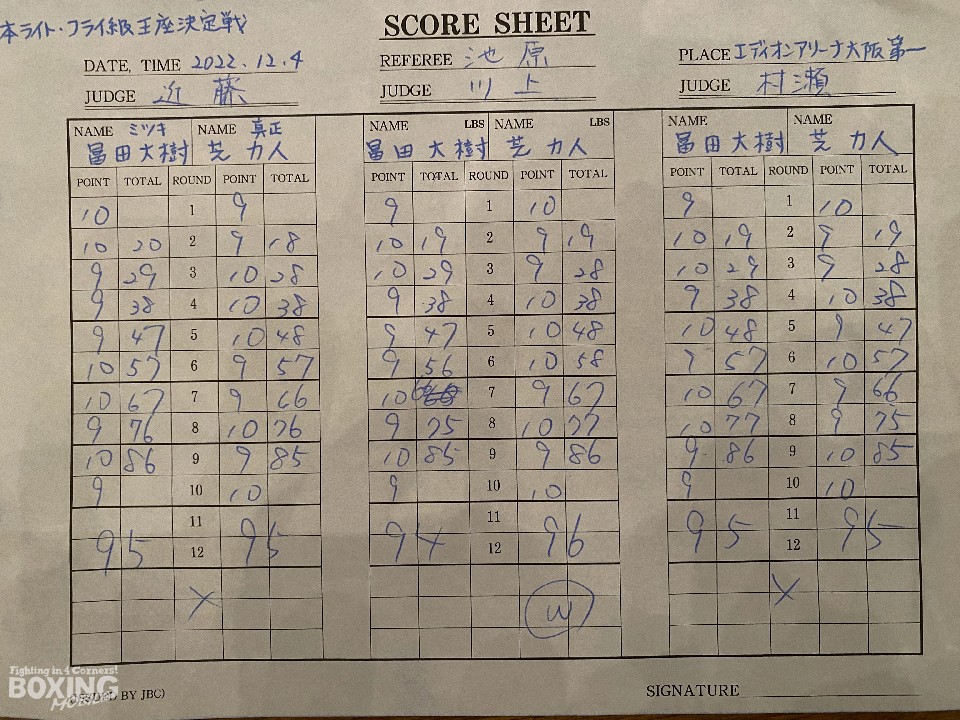 本ライト・フライ級王座決定戦
SCORE SHEET
DATE, TIME 2022.12.4
REFEREE 池原
PLACE エディオンアリーナ大阪第一
JUDGE 近藤
JUDGE 川上
JUDGE 村瀬
NAME ミツキ NAME 真正
冨田大樹 芝力人
NAME LBS NAME LBS
冨田大樹 芝力人
NAME NAME
冨田大樹 芝力人
POINT TOTAL ROUND POINT TOTAL
10 1 9
10 20 2 9 18
9 29 3 10 28
9 38 4 10 38
9 47 5 10 48
10 57 6 9 57
10 67 7 9 66
9 76 8 10 76
10 86 9 9 85
9 10 10
11
95 12 95
X
POINT TOTAL ROUND POINT TOTAL
9 1 10
10 19 2 9 19
10 29 3 9 28
9 38 4 10 38
9 47 5 10 48
9 56 6 10 58
10 66 7 9 67
9 75 8 10 77
10 85 9 9 86
9 10 10
11
94 12 96
W
POINT TOTAL ROUND POINT TOTAL
9 1 10
10 19 2 9 19
10 29 3 9 28
9 38 4 10 38
10 48 5 9 47
9 57 6 10 57
10 67 7 9 66
10 77 8 9 75
9 86 9 10 85
9 10 10
11
95 12 95
X
Fighting in 4 Corners!
BOXING
MOBILE
BY JBC)
SIGNATURE